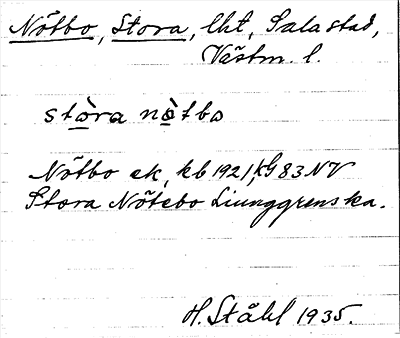 Nötbo, Stora, lht, Sala stad,
Västm. l.
stòra nòtbo
Nötbo ek, kb 1921, kG 83 NV
Stora Nötebo Liunggrenska.
H. Ståhl 1935.